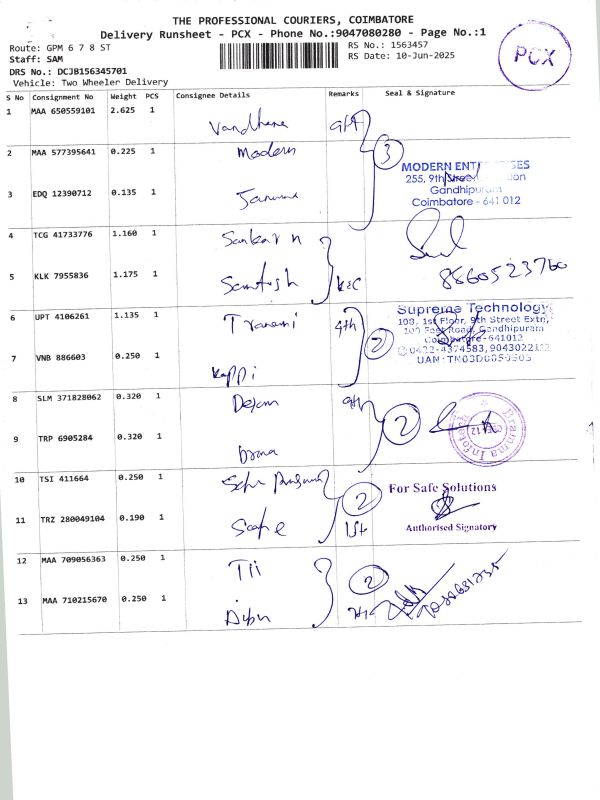 THE PROFESSIONAL COURIERS, COIMBATORE
Delivery Runsheet - PCX - Phone No.:9047080280 - Page No.:1
Route: GPM 6 7 8 ST
RS No.: 1563457
Staff: SAM
RS Date: 10-Jun-2025
DRS No.: DCJB156345701
Vehicle: Two Wheeler Delivery
PCX
S No Consignment No Weight PCS Consignee Details Remarks Seal & Signature
1 MAA 650559101 2.625 1 Vandhana 9th
2 MAA 577395641 0.225 1 Modern 3
MODERN ENTERPRISES
255, 9th Street
Gandhipuram
Coimbatore - 641 012
3 EDQ 12390712 0.135 1
4 TCG 41733776 1.160 1 Sankar n
5 KLK 7955836 1.175 1 Santhosh
8860523760
6 UPT 4106261 1.135 1 4th
Supreme Technology
108, 1st Floor, 9th Street Extn,
100 Feet Road, Gandhipuram
Coimbatore-641012
7 VNB 886603 0.250 1 Kappi 2
8 SLM 371828062 0.320 1 9th 2
Bramma Infotech
9 TRP 6905284 0.320 1
10 TSI 411664 0.250 1 2
For Safe Solutions
11 TRZ 280049104 0.190 1 Safe 1st
Authorised Signatory
12 MAA 709056363 0.250 1 Tii 2
13 MAA 710215670 0.250 1 Dipu